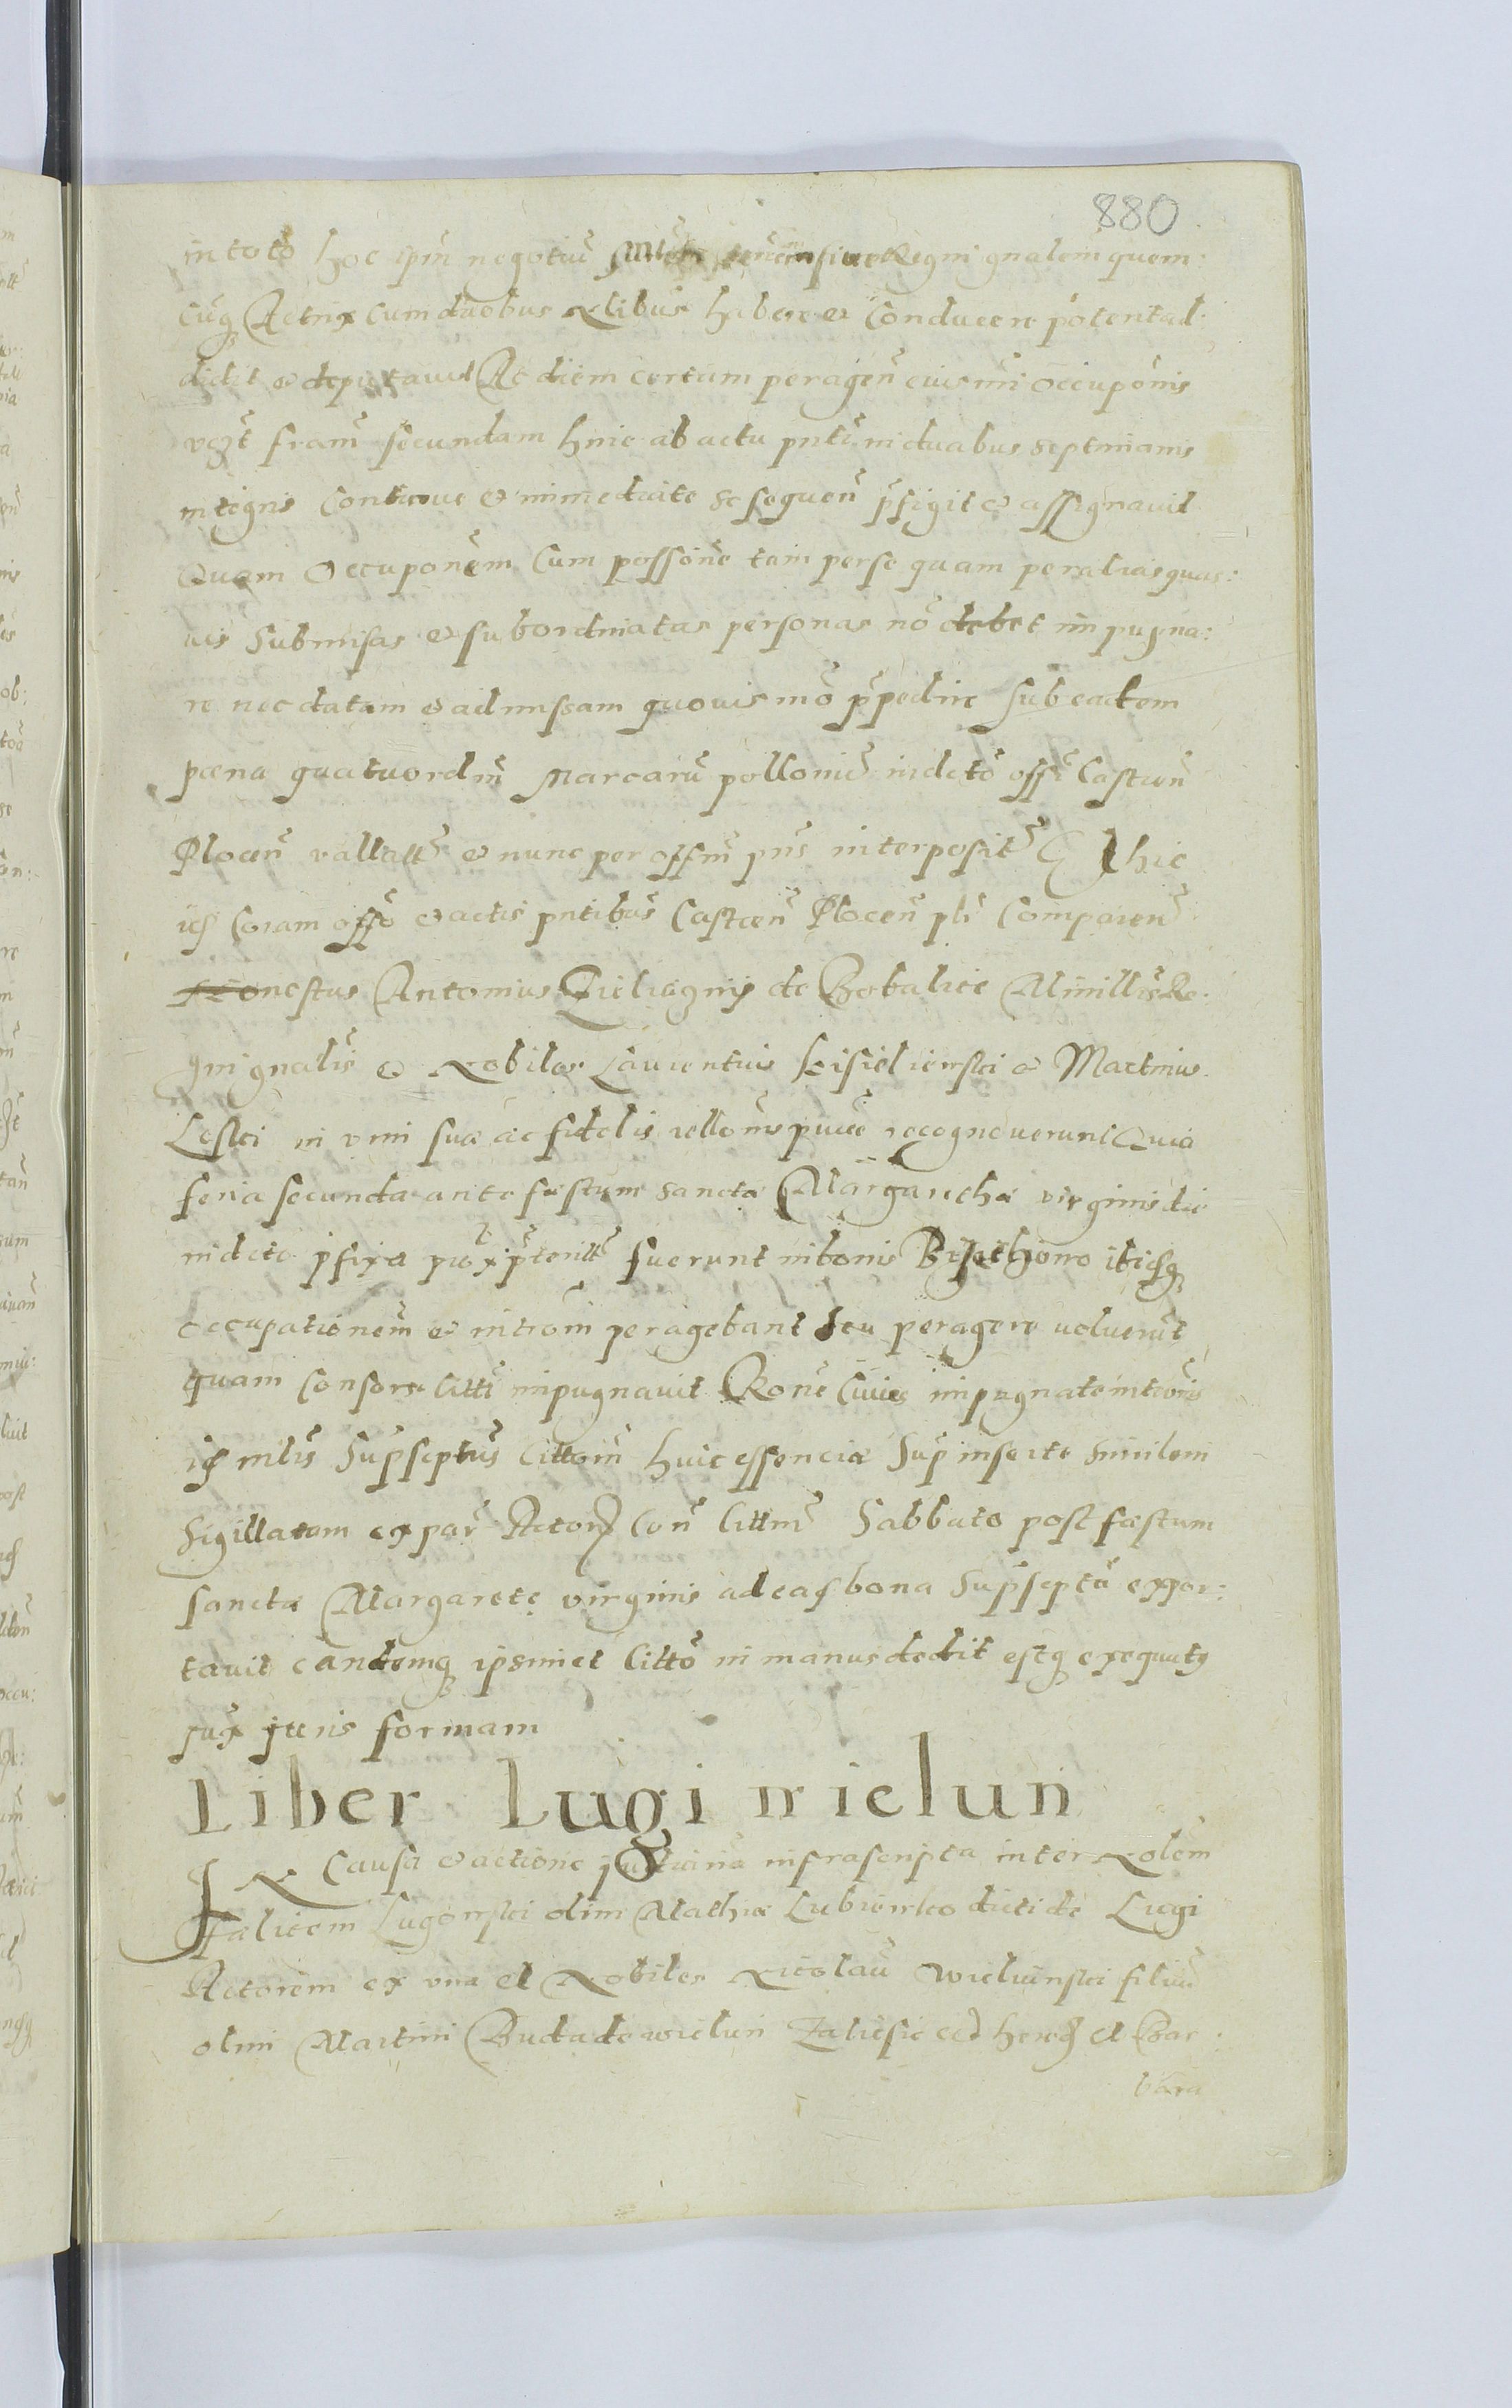 880
in toto hoc ipm negotiũ siue Regni gnalem quem:
cũq Actrix cum duobus Nlibus habere et conducere potent ad:
didit et deputauit Ac diem certum peragen eiusmi occuponis
vczt fram secundam hinc ab actu pnti in duabus septimanis
integris continue et immediate se sequen pfigit et assignauit
Quam Occuponem Cum possone tam per se quam per alias quas:
uis submisas et subordinatas personas nõ debet impugna:
re nec datam et admissam quouis mõ ppedire sub eadem
pœna quatuordm Marcarũ polloni in dcto offi Castren
Plocen vallatt et nunc per offm pns interposit Et hic
ids Coram offo et actis pntibus Castren Plocen pli Comparen
onestus Antonius de Bobalice Minillis Re:
gni gnalis et Nobiles Laurentius Kisielienski et Martinus
Leski in vim suæ ac fidelis rellonis recognouerunt Quia
feria secunda ante festum sanctæ Margarethæ virginis die
in dcto pfixa prox pteritt fuerunt in bonis ibidq
occupationem et introm peragebant seu peragere uoluerũt
quam consors citti impugnauit Rone cuius impugnate introis
ids mlis supscptus cittom huic essenciæ sup inserte similem
sigillatam ex par Actor con cittm Sabbato post fæstum
sanctæ Margarete virginis ad eas bona supscpta expor:
tauit eandemq ipsmet citto in manus dedit estq exequutq
iux juris formam
Liber Lugi wielun
IN Causa et actione infrascripta inter Nolem
Fælicem Lugonski olim Mathiæ Lubienko dicti de Lugi
Actorem ex vna et Nobiles Nicolaũ wieluinski filiũ
olim Martini Buda de wielun Zaliesie hered et Bar:
bara